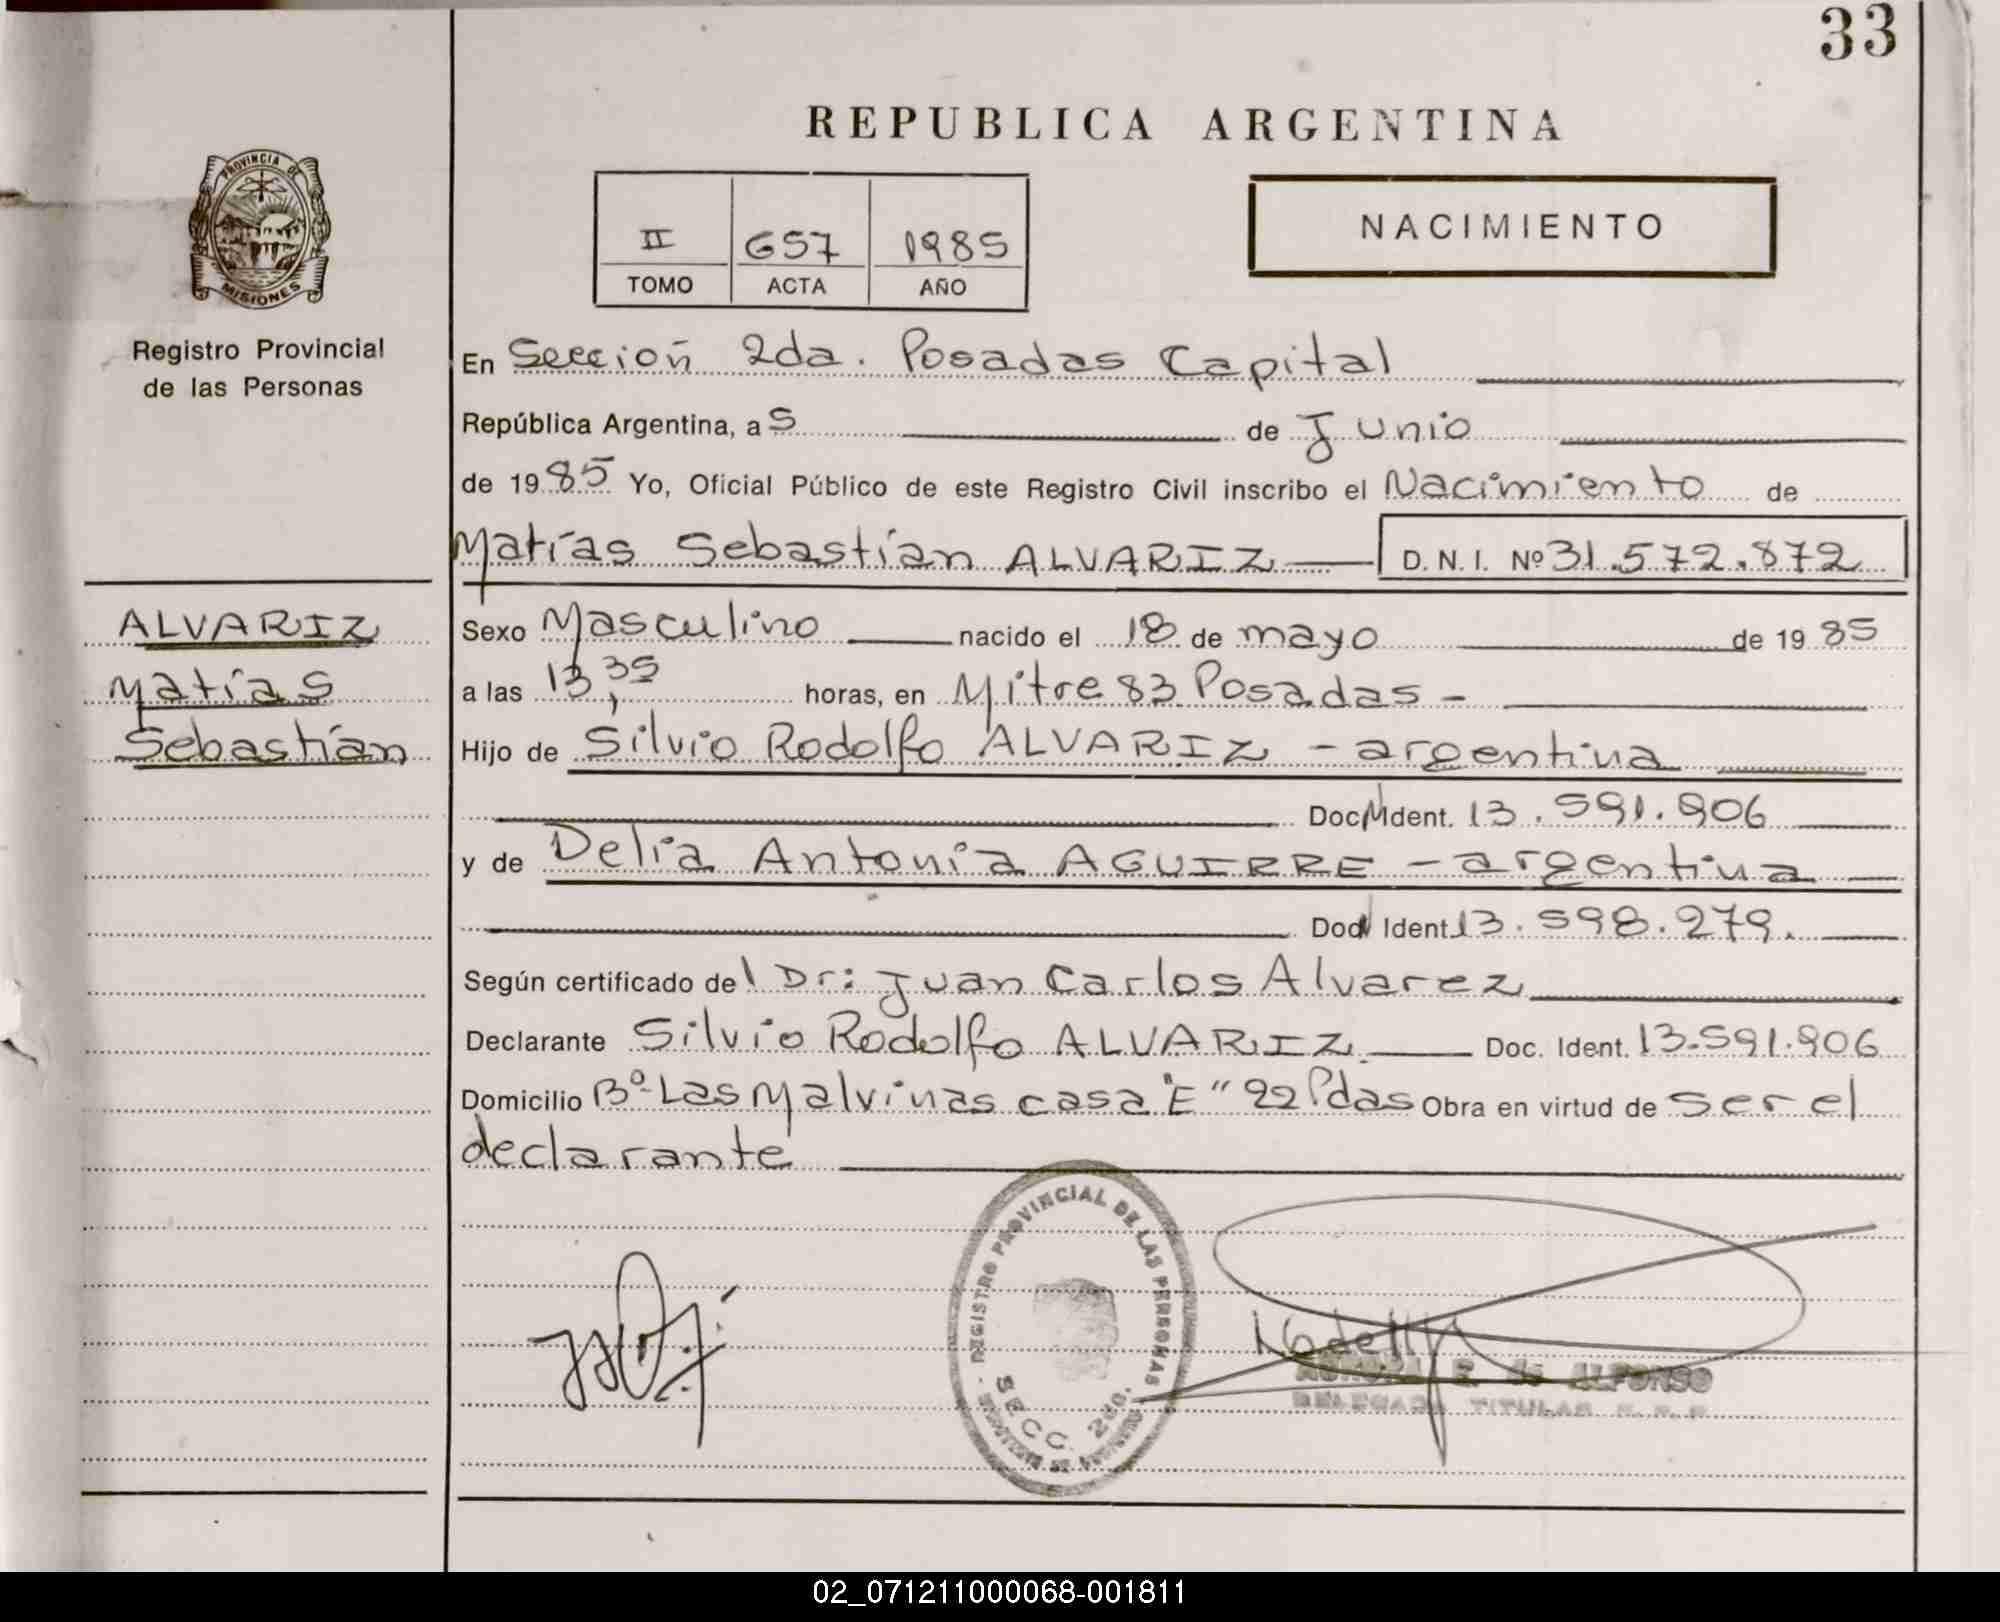 33
REPUBLICA ARGENTINA
PROVINCIA DE
MISIONES
Registro Provincial
de las Personas
II 657 1985
TOMO ACTA AÑO
NACIMIENTO
En Sección 2da. Posadas Capital
República Argentina, a 5 de Junio
de 1985 Yo, Oficial Público de este Registro Civil inscribo el Nacimiento de
Matías Sebastían ALVARIZ D. N. I. Nº 31.572.872
ALVARIZ
Matías
Sebastían
Sexo Masculino nacido el 18 de mayo de 1985
a las 13,35 horas, en Mitre 83 Posadas -
Hijo de Silvio Rodolfo ALVARIZ - argentina
Doc. Ident. 13.591.906
y de Delia Antonia AGUIRRE - argentina
Doc. Ident. 13.598.279.
Según certificado del Dr: Juan Carlos Alvarez
Declarante Silvio Rodolfo ALVARIZ Doc. Ident. 13.591.906
Domicilio Bº Las Malvinas casa "E" 22 Pdas Obra en virtud de ser el
declarante
REGISTRO PROVINCIAL DE LAS PERSONAS
SECC. 2da.
E. de ALFONSO
DELEGADA TITULAR
02_071211000068-001811